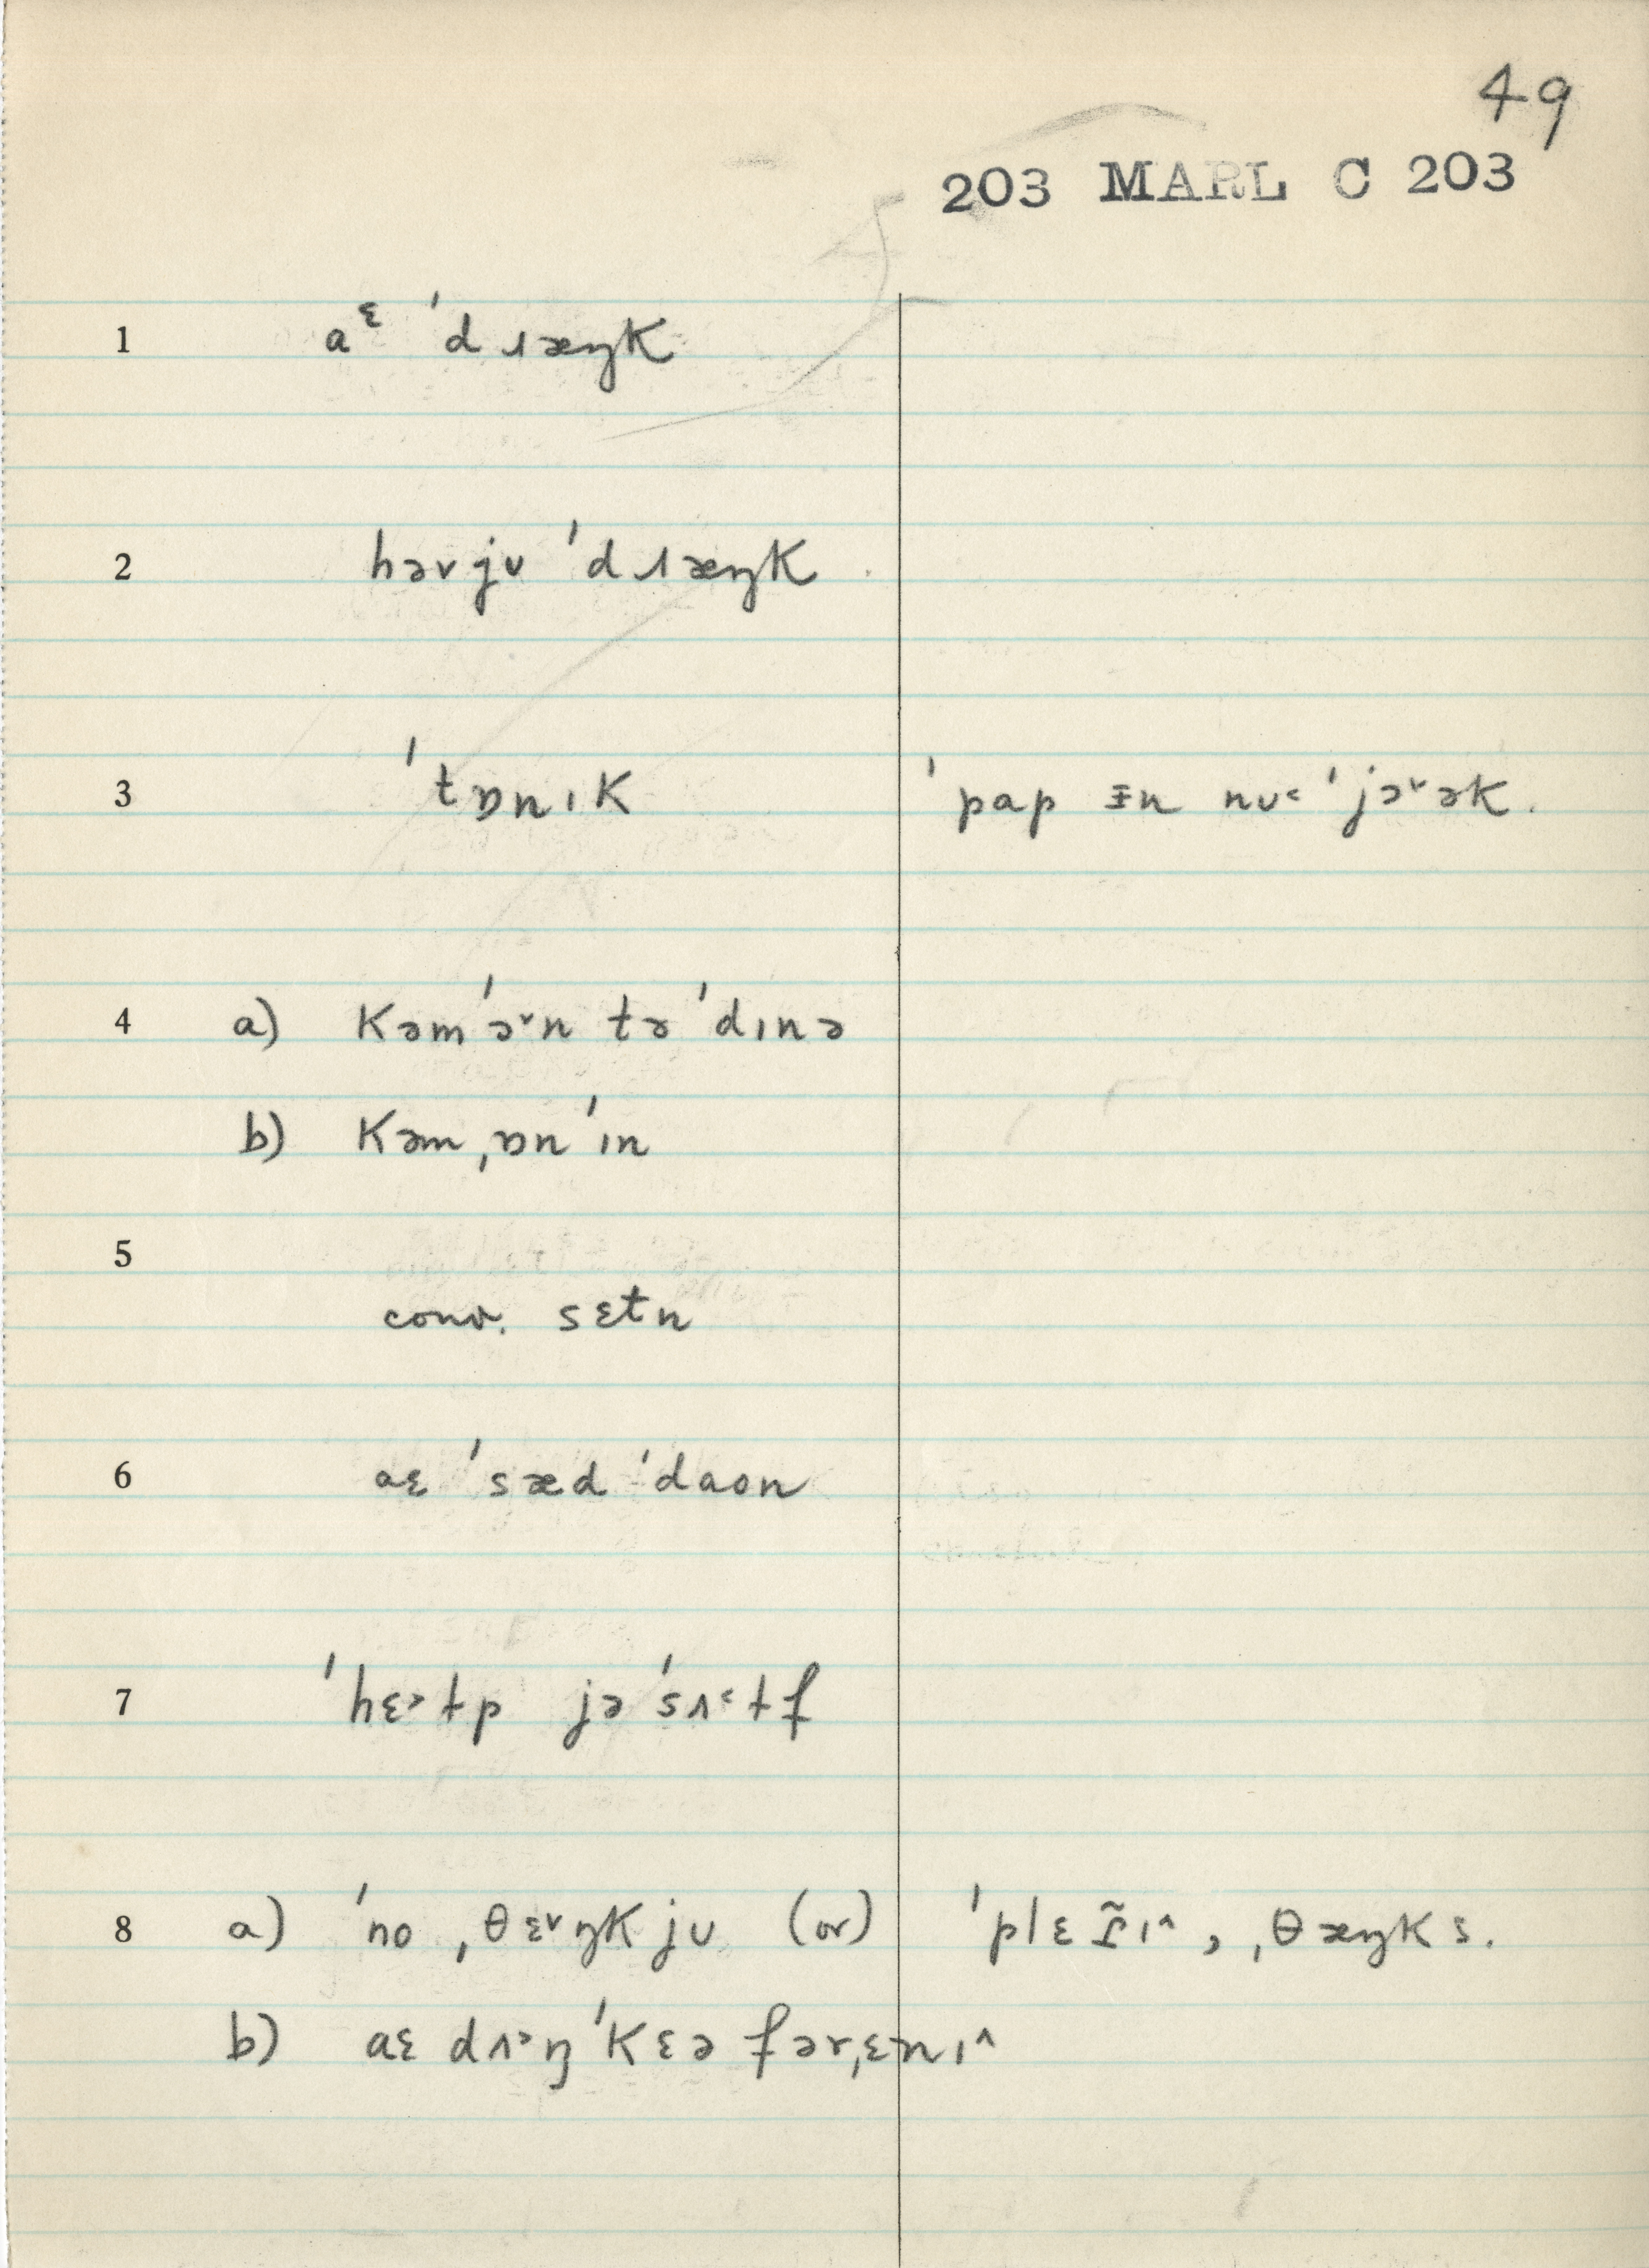 49
203 MARL C 203
1 aᵋ ˈdɹæŋk
2 həv jʊ ˈdɹæŋk
3 ˈtɒnɪk ˈpap ɪ̵n nʊ˂ ˈjɔ˅ək.
4 a) kəm ˈɔ˅n tə ˈdɪnə
b) kəm ˌɒn ˈɪn
5
conv. sɛtn
6 aɛ ˈsæd ˈdaʊn
7 ˈhɛ˃ɫp jə ˈsʌ˂ɫf
8 a) ˈno ˌθɛ˅ŋk jʊ (or) ˈplɛɾ̃ɪ˄, ˌθæŋks.
b) aɛ dʌ˃ŋ ˈkɛə fər ˌɛnɪ˄